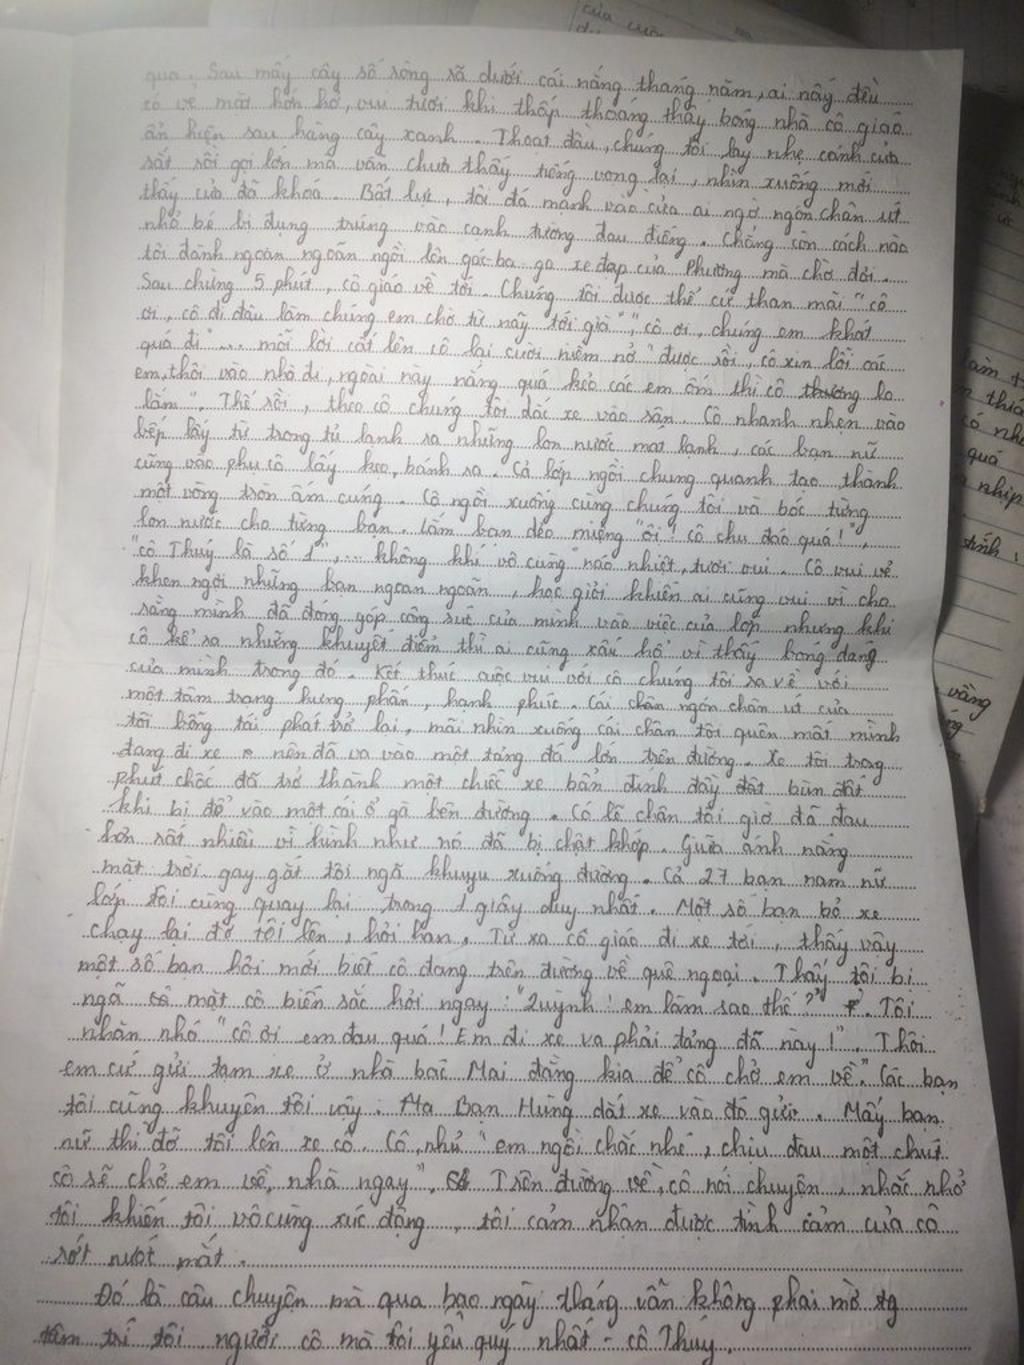 của cuộc
qua. Sau mấy cây số ròng rã dưới cái nắng tháng năm, ai nấy đều
có vẻ mặt hớn hở, vui tươi khi thấp thoáng thấy bóng nhà cô giáo
ẩn hiện sau hàng cây xanh. Thoạt đầu, chúng tôi lay nhẹ cánh cửa
sắt rồi gọi lớn mà vẫn chưa thấy tiếng vọng lại, nhìn xuống mới
thấy cửa đã khoá. Bất lực, tôi đá mạnh vào cửa ai ngờ ngón chân út
nhỏ bé bị đụng trúng vào cạnh tường đau điếng. Chẳng còn cách nào
tôi đành ngoan ngoãn ngồi lên gác-ba-ga xe đạp của Phương mà chờ đợi.
Sau chừng 5 phút, cô giáo về tới. Chúng tôi được thế cứ than mãi "cô
ơi, cô đi đâu làm chúng em chờ từ nãy tới giờ", "cô ơi, chúng em khát
quá đi"... mỗi lời cất lên cô lại cười niềm nở "được rồi, cô xin lỗi các
em, thôi vào nhà đi, ngoài này nắng quá kẻo các em ốm thì cô thương lo
lắm". Thế rồi, theo cô chúng tôi dắt xe vào sân. Cô nhanh nhẹn vào
bếp lấy từ trong tủ lạnh ra những lon nước mát lạnh, các bạn nữ
cũng vào phụ cô lấy kẹo, bánh ra. Cả lớp ngồi chung quanh tạo thành
một vòng tròn ấm cúng. Cô ngồi xuống cùng chúng tôi và bóc từng
lon nước cho từng bạn. Lắm bạn dẻo miệng "ôi! cô chu đáo quá!",
"cô Thuý là số 1",... không khí vô cùng náo nhiệt, tươi vui. Cô vui vẻ
khen ngợi những bạn ngoan ngoãn, học giỏi khiến ai cũng vui vì cho
rằng mình đã đóng góp công sức của mình vào việc của lớp nhưng khi
cô kể ra những khuyết điểm thì ai cũng xấu hổ vì thấy bóng dáng
của mình trong đó. Kết thúc cuộc vui với cô chúng tôi ra về với
một tâm trạng hưng phấn, hạnh phúc. Cái chân ngón chân út của
tôi bỗng tái phát trở lại, mải nhìn xuống cái chân tôi quên mất mình
đang đi xe nên đã va vào một tảng đá lớn trên đường. Xe tôi trong
phút chốc đã trở thành một chiếc xe bẩn dính đầy đất bùn đất
khi bị đổ vào một cái ổ gà bên đường. Có lẽ chân tôi giờ đã đau
hơn rất nhiều vì hình như nó đã bị chật khớp. Giữa ánh nắng
mặt trời gay gắt tôi ngã khuỵu xuống đường. Cả 27 bạn nam nữ
lớp tôi cùng quay lại trong 1 giây duy nhất. Một số bạn bỏ xe
chạy lại đỡ tôi lên, hỏi han. Từ xa cô giáo đi xe tới, thấy vậy
một số bạn hỏi mới biết cô đang trên đường về quê ngoại. Thấy tôi bị
ngã mặt cô biến sắc hỏi ngay: "Quỳnh! em làm sao thế?" Tôi
nhăn nhó "cô ơi em đau quá! Em đi xe va phải tảng đá này!". Thôi
em cứ gửi tạm xe ở nhà bác Mai đằng kia để cô chở em về." Các bạn
tôi cũng khuyên tôi vậy. Bạn Hùng dắt xe vào đó gửi. Mấy bạn
nữ thì đỡ tôi lên xe cô. Cô nhủ "em ngồi chắc nhé, chịu đau một chút
cô sẽ chở em về nhà ngay". Trên đường về, cô nói chuyện, nhắc nhở
tôi khiến tôi vô cùng xúc động, tôi cảm nhận được tình cảm của cô
rớt nước mắt.
Đó là câu chuyện mà qua bao ngày tháng vẫn không phai mờ
tâm trí tôi người cô mà tôi yêu quý nhất - cô Thuý.
có nh
quá
nhịp
vằng